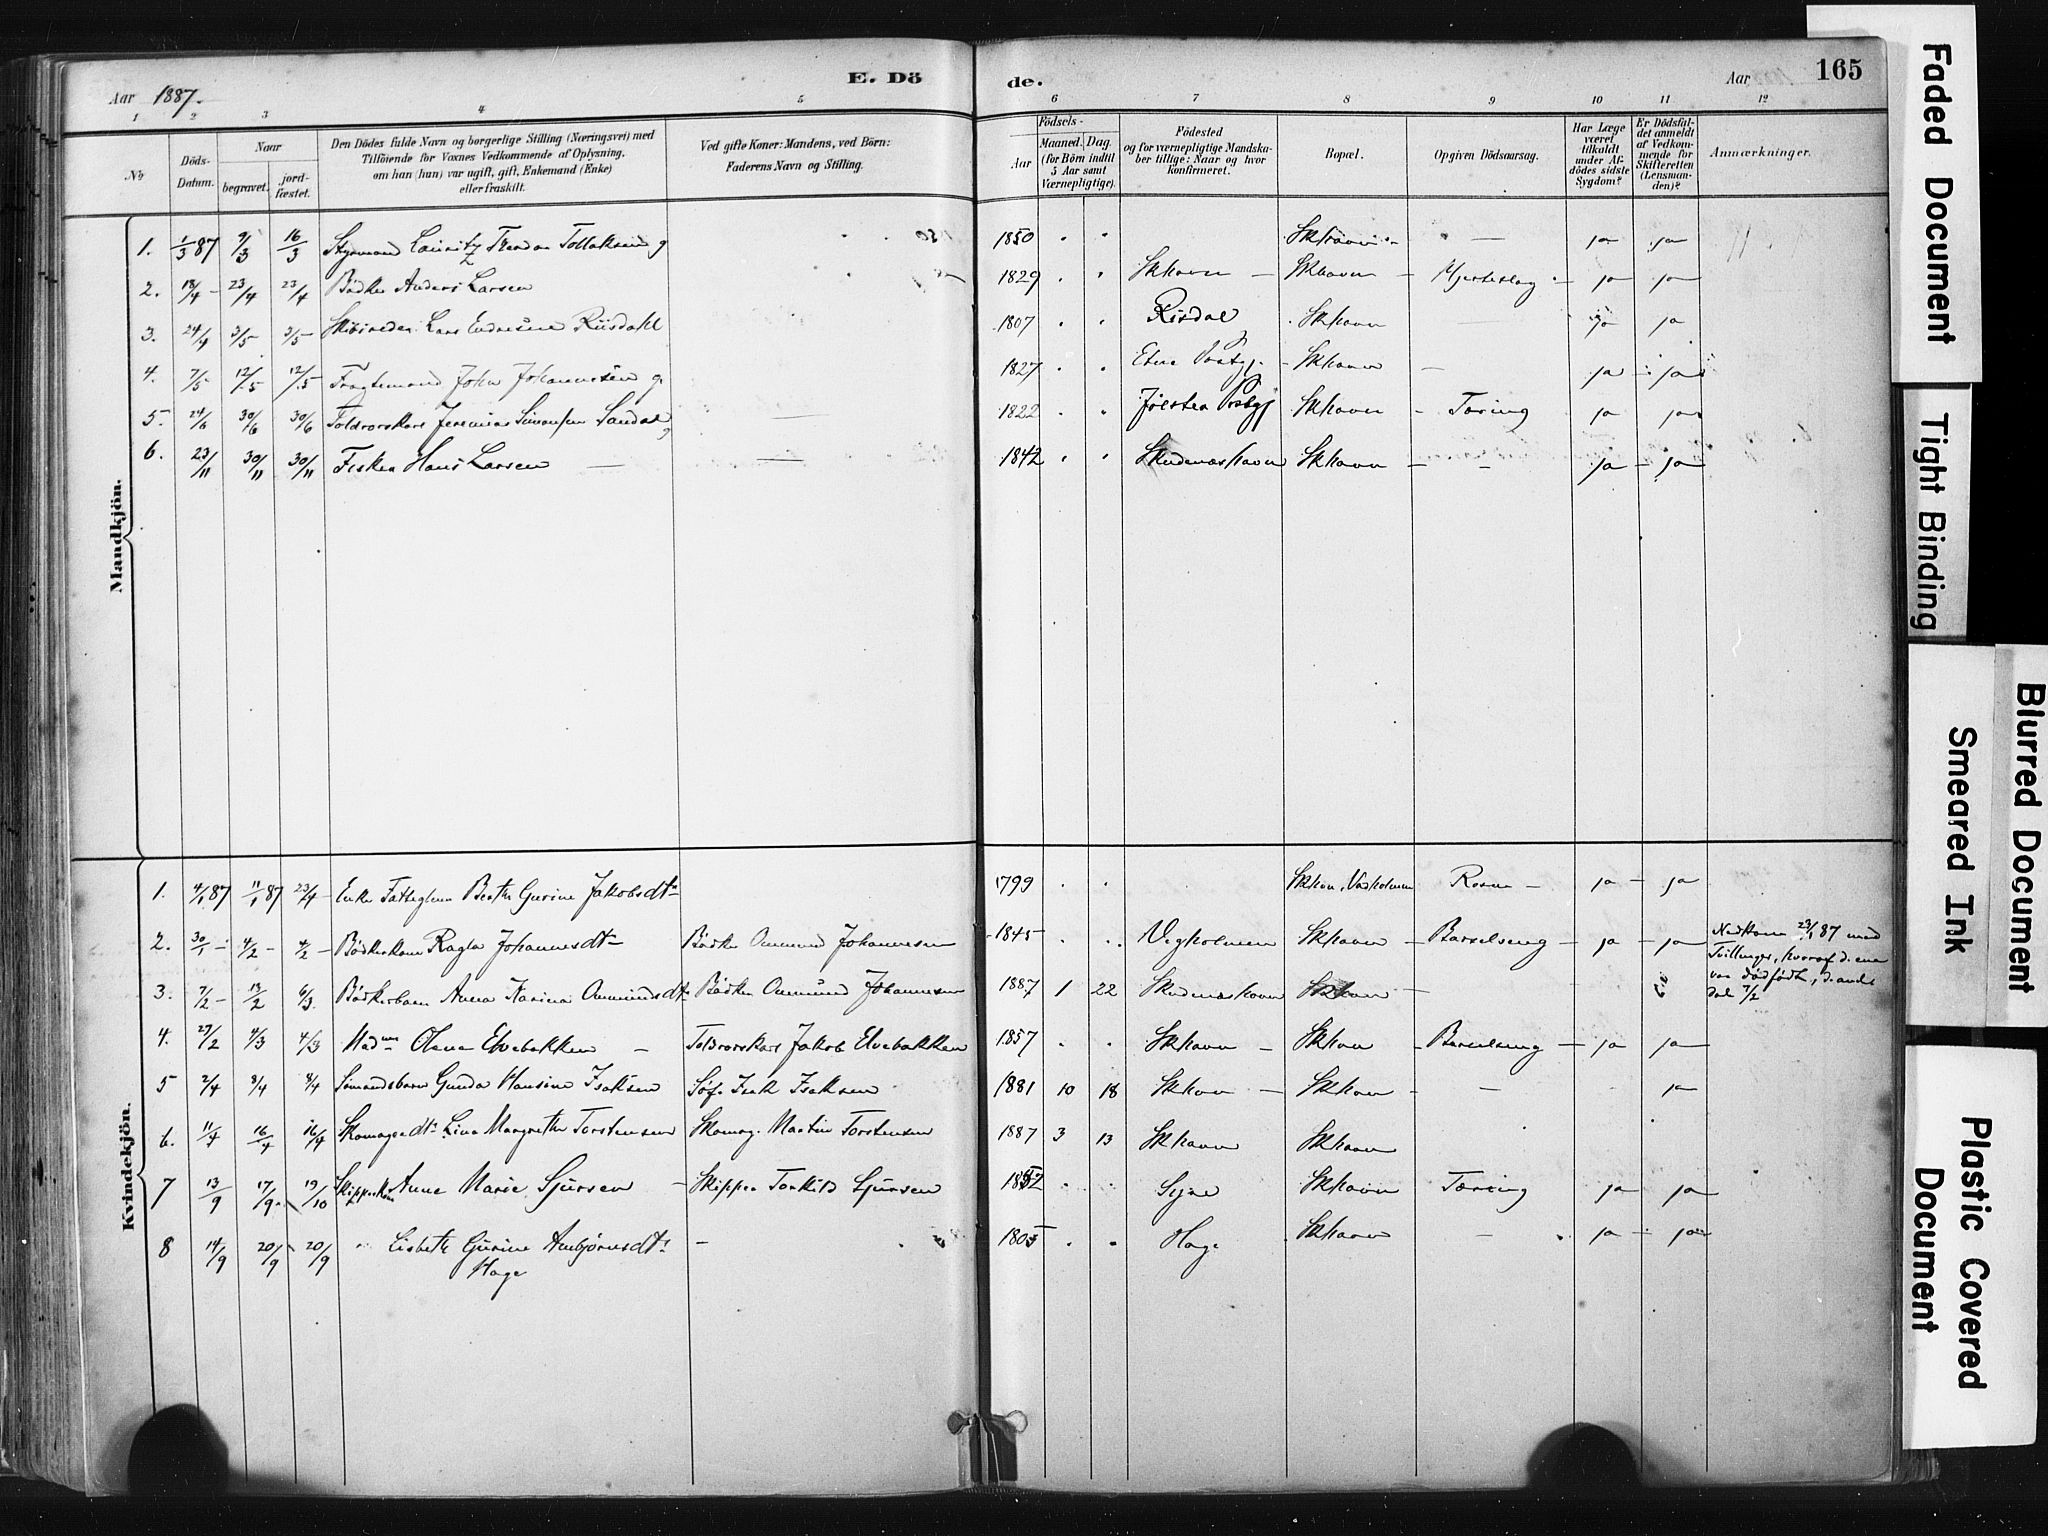 Aar 1887.
E. Dö
de.
Aar
165
1 2 3 4 5 6 7 8 9 10 11 12
No
Döds-Datum.
Naar
begravet.
jord-fæstet.
Den Dödes fulde Navn og borgerlige Stilling (Næringsvei) med
Tilföiende for Voxnes Vedkommende af Oplysning,
om han (hun) var ugift, gift, Enkemand (Enke)
eller fraskilt.
Ved gifte Koner: Mandens, ved Börn:
Faderens Navn og Stilling.
Födsels-
Aar
Maaned. Dag.
(for Börn indtil
5 Aar samt
Værnepligtige).
Födested
og for værnepligtige Mandska-
ber tillige: Naar og hvor
konfirmeret.
Bopæl.
Opgiven Dödsaarsag.
Har Læge
været
tilkaldt
under Af-
dödes sidste
Sygdom?
Er Dödsfal-
det anmeldt
af Vedkom-
mende for
Skifteretten
(Lensman-
den)?
Anmærkninger.
Mandkjön.
1. 1/3 87 9/3 16/3 Styrmand Lauritz Tollaksen g 1850 Skhavn – ja ja
2. 18/4 – 23/4 23/4 Bödker Anders Larsen 1829 Skhavn – Skhavn – Hjerteslag – ja ja
3. 24/4 3/5 3/5 Skibsreder Lars Endresen Riisdahl 1807 Risdal Skhavn ja ja
4. 7/5 12/5 12/5 Fragtemand John Johannesen g. 1827 Etne Præstgj. – Skhavn – ja – ja
5. 24/6 30/6 30/6 Toldrorskarl Jeremias Simonsen Sandal g – 1822 Jölster Præstgj Skhavn – Tæring ja ja
6. 23/11 30/11 30/11 Fisker Hans Larsen – – 1842 Skudeneshavn Skhavn – – ja – ja
Kvindekjön.
1. 4/1 87 11/1 87 23/4 Enke Fattiglem Berthe Gurine Jakobsdtr 1799 Skhavn, Vaholmen – ja – ja
2. 30/1 – 4/2 – 4/2 – Bödkerkone Ragla Johannesdtr Bödker Ommund Johannesen 1845 Vegholmen Skhavn – Barselseng – ja – ja
Nedkom 23/1 87 med
Tvillinger, hvoraf d. ene
var dödfödt, d. anden
död 7/2
3. 7/2 – 13/2 6/3 Bödkerbarn Anna Karina Ommundsdtr Bödker Ommund Johannesen 1887 1 22 Skudeneshavn Skhavn –
4. 27/2 4/3 4/3 Mad. Olena Elvebakken – Toldrorskarl Jakob Elvebakken 1857 Skhavn – Skhavn – Barselseng – ja ja
5 2/4 8/4 8/4 Sömandsbarn Gunda Hansine Isaksen Söf. Isak Isaksen 1881 10 18 Skhavn – Skhavn – – ja
6. 11/4 16/4 16/4 Skomagerdtr Lina Margrethe Torstensen Skomag. Martin Torstensen 1887 3 13 Skhavn Skhavn
7 13/9 17/9 19/10 Skipperkone Anne Marie Sjursen – Skipper Torkild Sjursen 1852 Syre Skhavn Tæring ja ja
8 14/9 20/9 20/9 Lisbeth Gurine Ambjörnsdtr – 1805 Hage Skhavn – ja – ja
Hage
Faded Document
Tight Binding
Blurred Document
Smeared Ink
Plastic Covered
Document